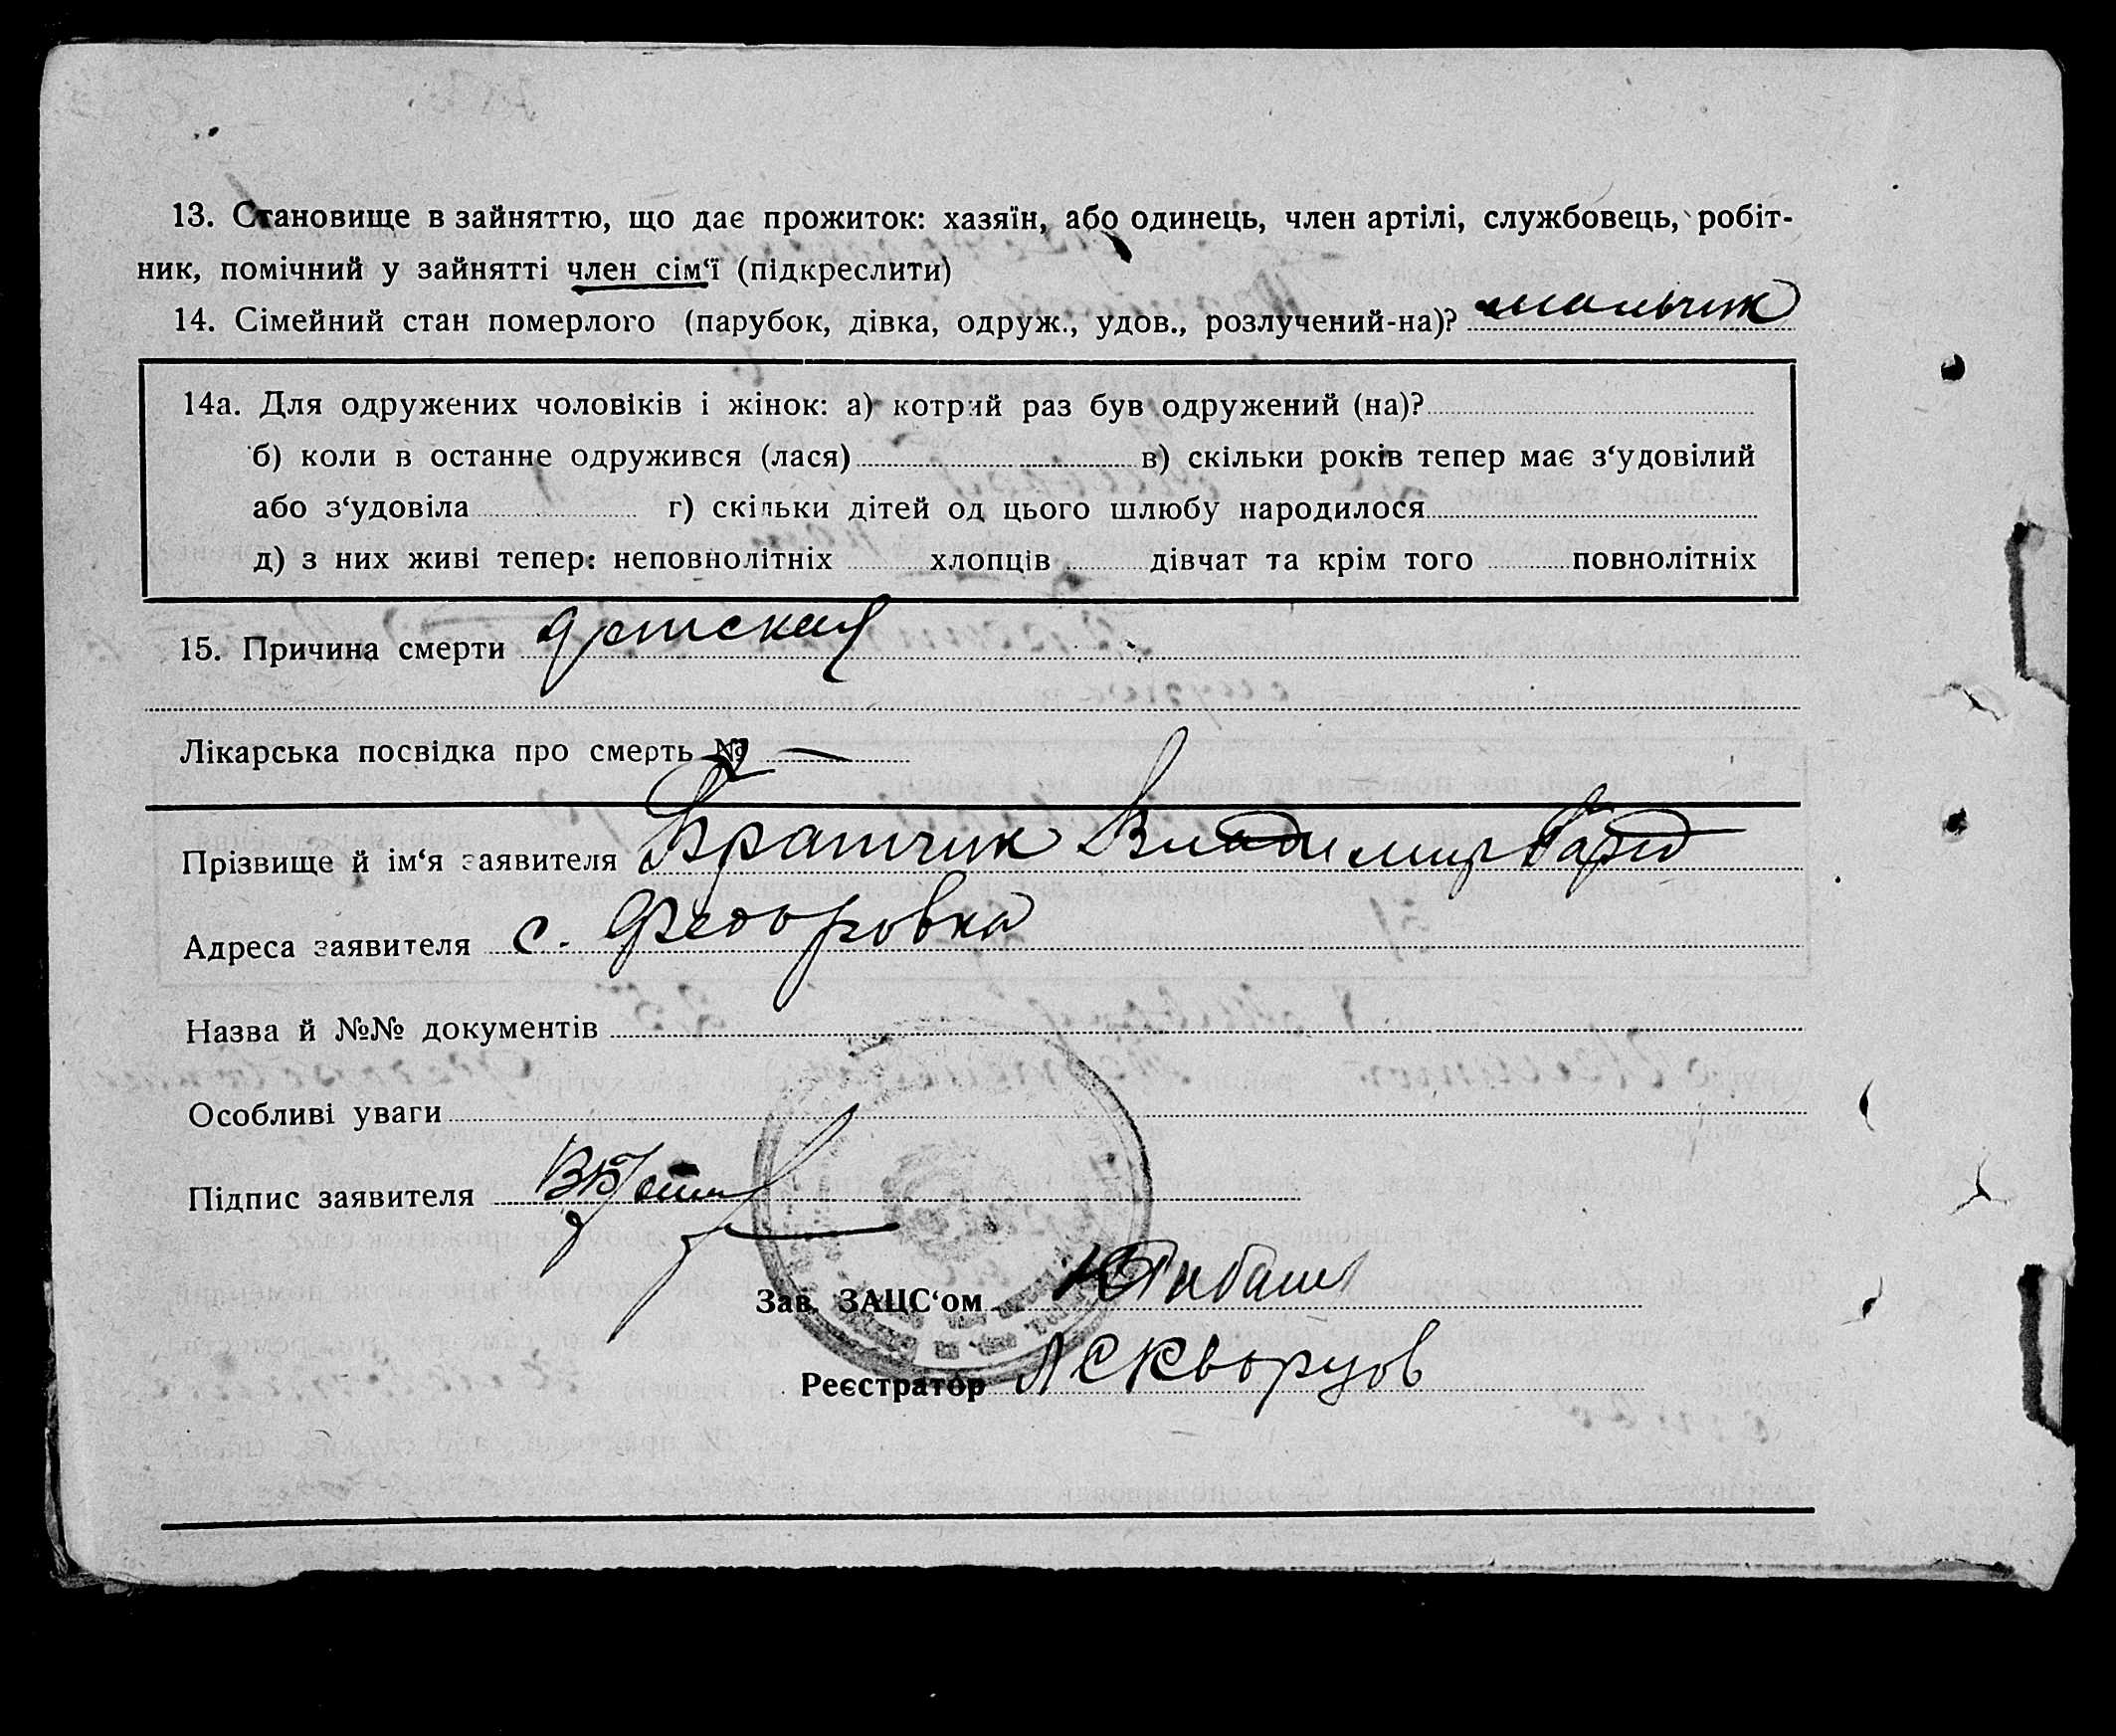 13. Становище в зайняттю, що дає прожиток: хазяїн, або одинець, член артілі, службовець, робіт-
ник, помічний у зайнятті член сім‘ї (підкреслити)
14. Сімейний стан померлого (парубок, дівка, одруж., удов., розлучений-на)? мальчик
14а. Для одружених чоловіків і жінок: а) котрий раз був одружений (на)?
б) коли в останне одружився (лася) в) скільки років тепер має з‘удовілий
або з‘удовіла г) скільки дітей од цього шлюбу народилося
д) з них живі тепер: неповнолітніх хлопців дівчат та крім того повнолітніх
15. Причина смерти детская
Лікарська посвідка про смерть № —
Прізвище й ім‘я заявителя Братчик Владимир
Адреса заявителя с. Федоровка
Назва й №№ документів
Особливі уваги
Підпис заявителя
Зав. ЗАЦС‘ом
Реєстратор Л Скворцов